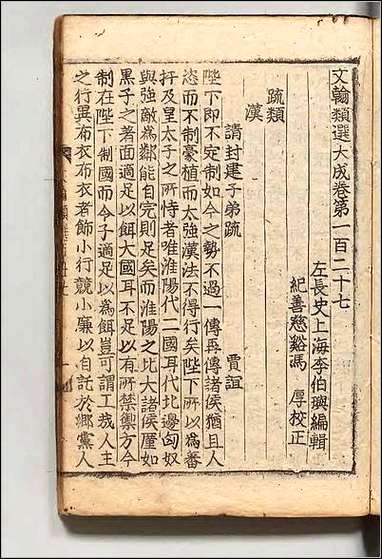 文翰類選大成卷第一百二十七
左長史上海李伯璵編輯
紀善慈谿馮　厚校正
疏類
漢
請封建子弟疏　賈誼
陛下即不定制如今之勢不過一傳再傳諸侯猶且人
恣而不制豪植而太強漢法不得行矣陛下所以為蕃
扞及皇太子之所恃者唯淮陽代二國耳代北邊匈奴
與強敵為鄰能自完則足矣而淮陽之比大諸侯廑如
黑子之著面適足以餌大國耳不足以有所禁禦方今
制在陛下制國而令子適足以為餌豈可謂工哉人主
之行異布衣布衣者飾小行競小廉以自託於鄉黨人